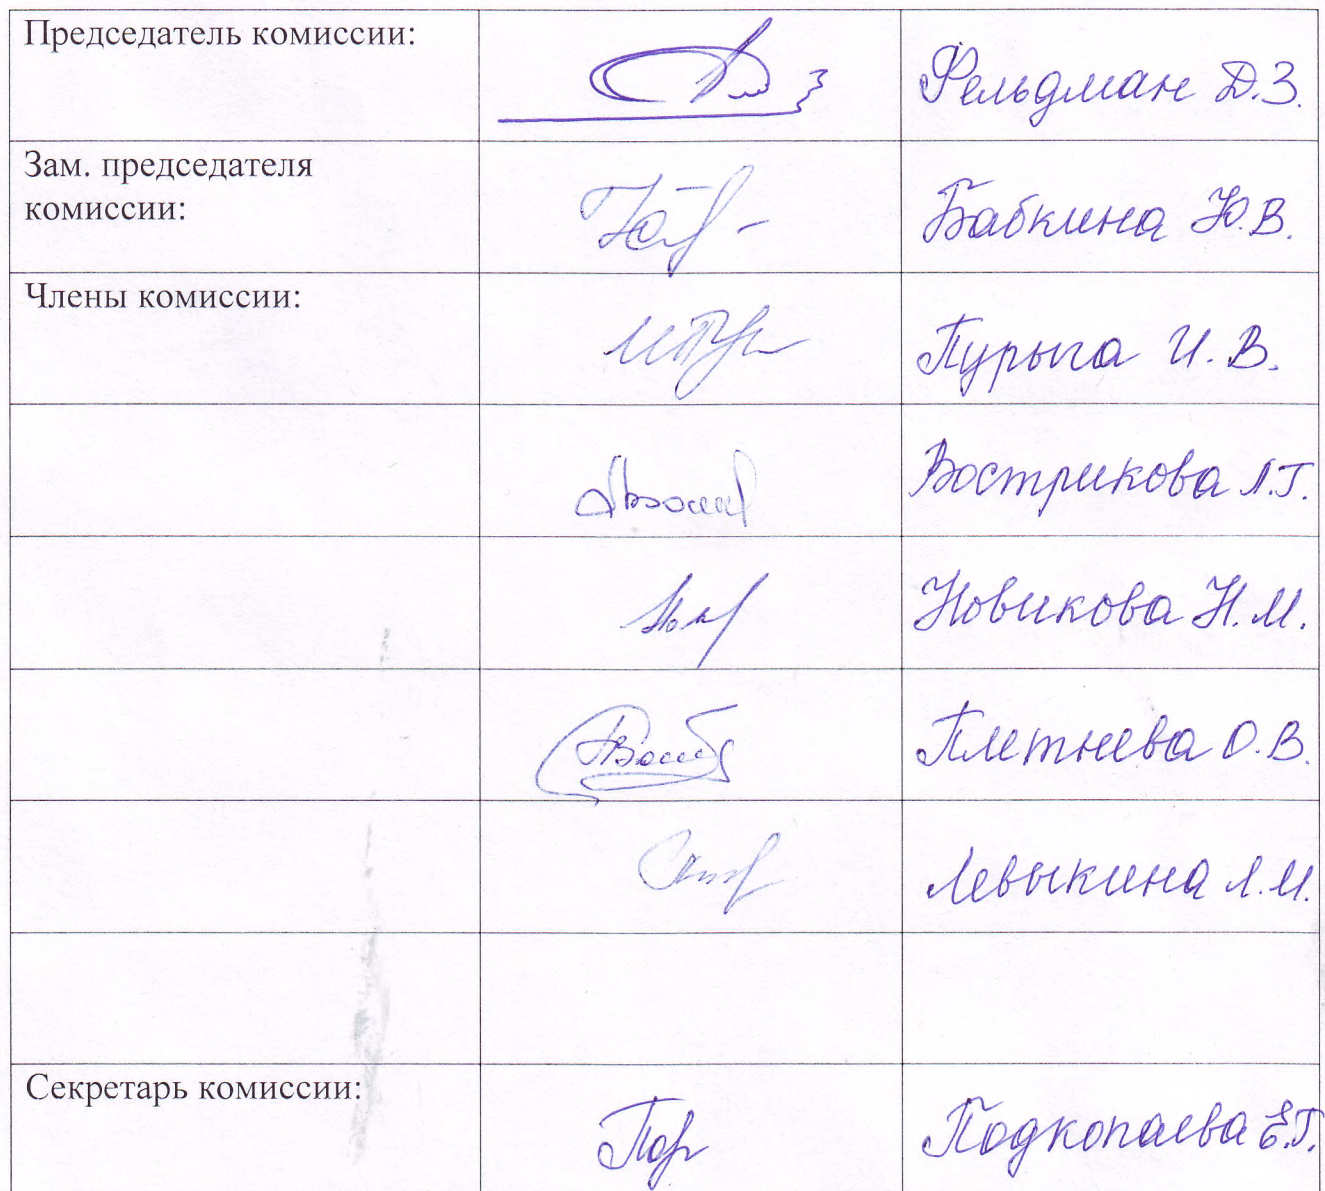 Председатель комиссии:
Фельдман Д.З.
Зам. председателя
комиссии:
Бабкина Ю.В.
Члены комиссии:
Пурыга И. В.
Вострикова Л.Г.
Новикова Н.М.
Плетнева О.В.
Левыкина Л.И.
Секретарь комиссии:
Подкопаева Е.Г.